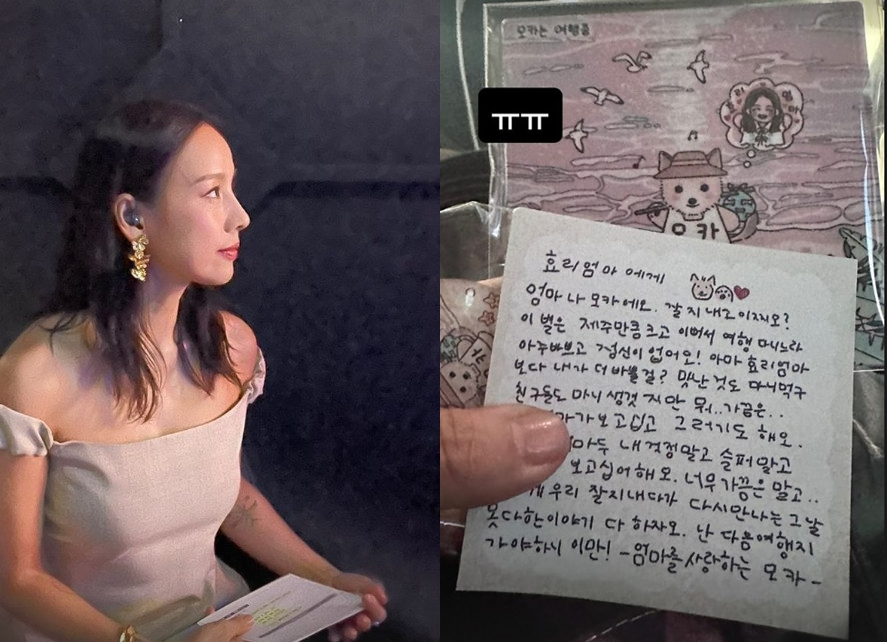 모카는 여행중
ㅠㅠ
모카
효리엄마 에게
엄마 나 모카에오. 잘 지내고이찌오?
이 별은 제주만큼크고 이뻐서 여행 다니느라
아주바쁘고 정신이 업어오! 아마 효리엄마
보다 내가 더 바쁠걸? 맛난 것도 마니먹구
친구들도 마니 생겻 지만 뭐..가끔은..
가보고십고 그러기도 해오.
마두 내 걱정말고 슬퍼말고
보고십어 해오. 너무 가끔은 말고..
우리 잘지내다가 다시만나는 그날
못다한이야기 다 하자오. 난 다음여행지
가야하니 이만! -엄마를 사랑하는 모카-